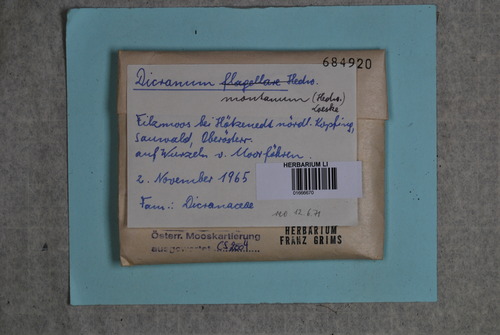 684920
Dicranum flagellare Hedw.
montanum (Hedw.)
Loeske
Filzmoos bei Hötzenedt nördl. Kopfing,
Sauwald, Oberösterr.
auf Wurzeln v. Moorföhren.
HERBARIUM LI
2. November 1965
Fam.: Dicranaceae
12.6.71
HERBARIUM
FRANZ GRIMS
Österr. Mooskartierung
ausgewertet CS 2004